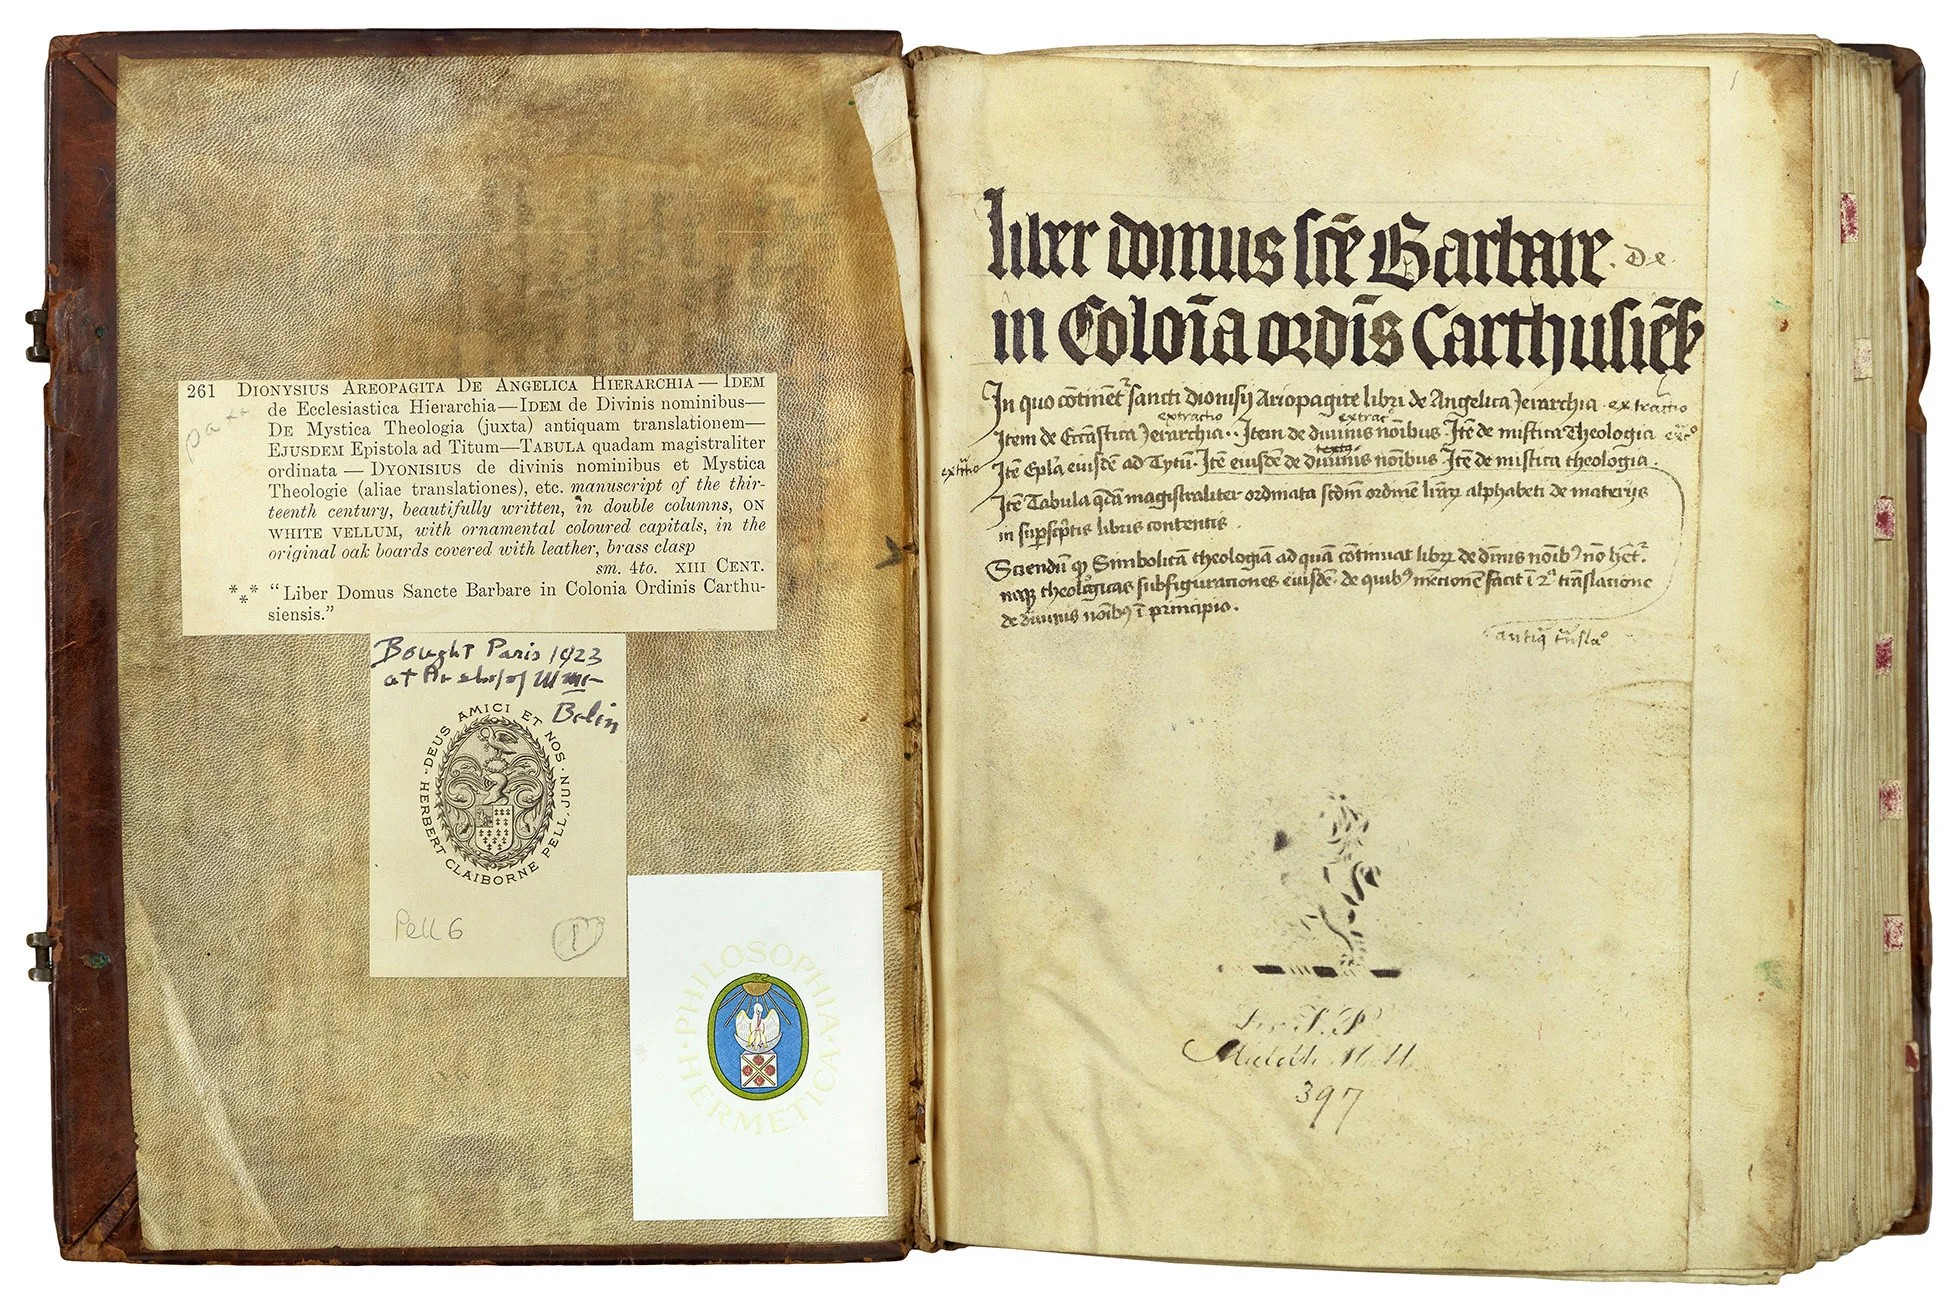 261 DIONYSIUS AREOPAGITA DE ANGELICA HIERARCHIA — IDEM
de Ecclesiastica Hierarchia—IDEM de Divinis nominibus—
DE Mystica Theologia (juxta) antiquam translationem—
EJUSDEM Epistola ad Titum—TABULA quadam magistraliter
ordinata — DYONISIUS de divinis nominibus et Mystica
Theologie (aliae translationes), etc. manuscript of the thir-
teenth century, beautifully written, in double columns, ON
WHITE VELLUM, with ornamental coloured capitals, in the
original oak boards covered with leather, brass clasp
sm. 4to. XIII CENT.
*** "Liber Domus Sancte Barbare in Colonia Ordinis Carthu-
siensis."
Bought Paris 1923
at
Belin
DEUS AMICI ET NOS · HERBERT CLAIBORNE PELL, JUN ·
Pell 6
1
· PHILOSOPHIA · HERMETICA
1
liber domus scē Barbare . De
in Coloīa ordīs Carthusiēs
In quo cōtinēt sancti dionisij Ariopagite libri de Angelica Jerarchia · extractio
extractio extrac
Item de Eccāstica Jerarchia · Item de diuinis noībus · Itē de mistica Theologia
textus
Itē Epła eiusdē ad Tytū · Itē eiusdē de diuinis noībus · Itē de mistica theologia ·
Itē Tabula qdā magistraliter ordinata scdm ordinē alphabeti de materijs
in libris contentis ·
Sciendū Simbolicā theologiā ad quā cōtinuat de diuis noībꝰ nō
theologicas subfigurationes eiusdē · de quibꝰ mētionē facit ī translatione
de diuinis noībꝰ ī principio ·
antiq
397